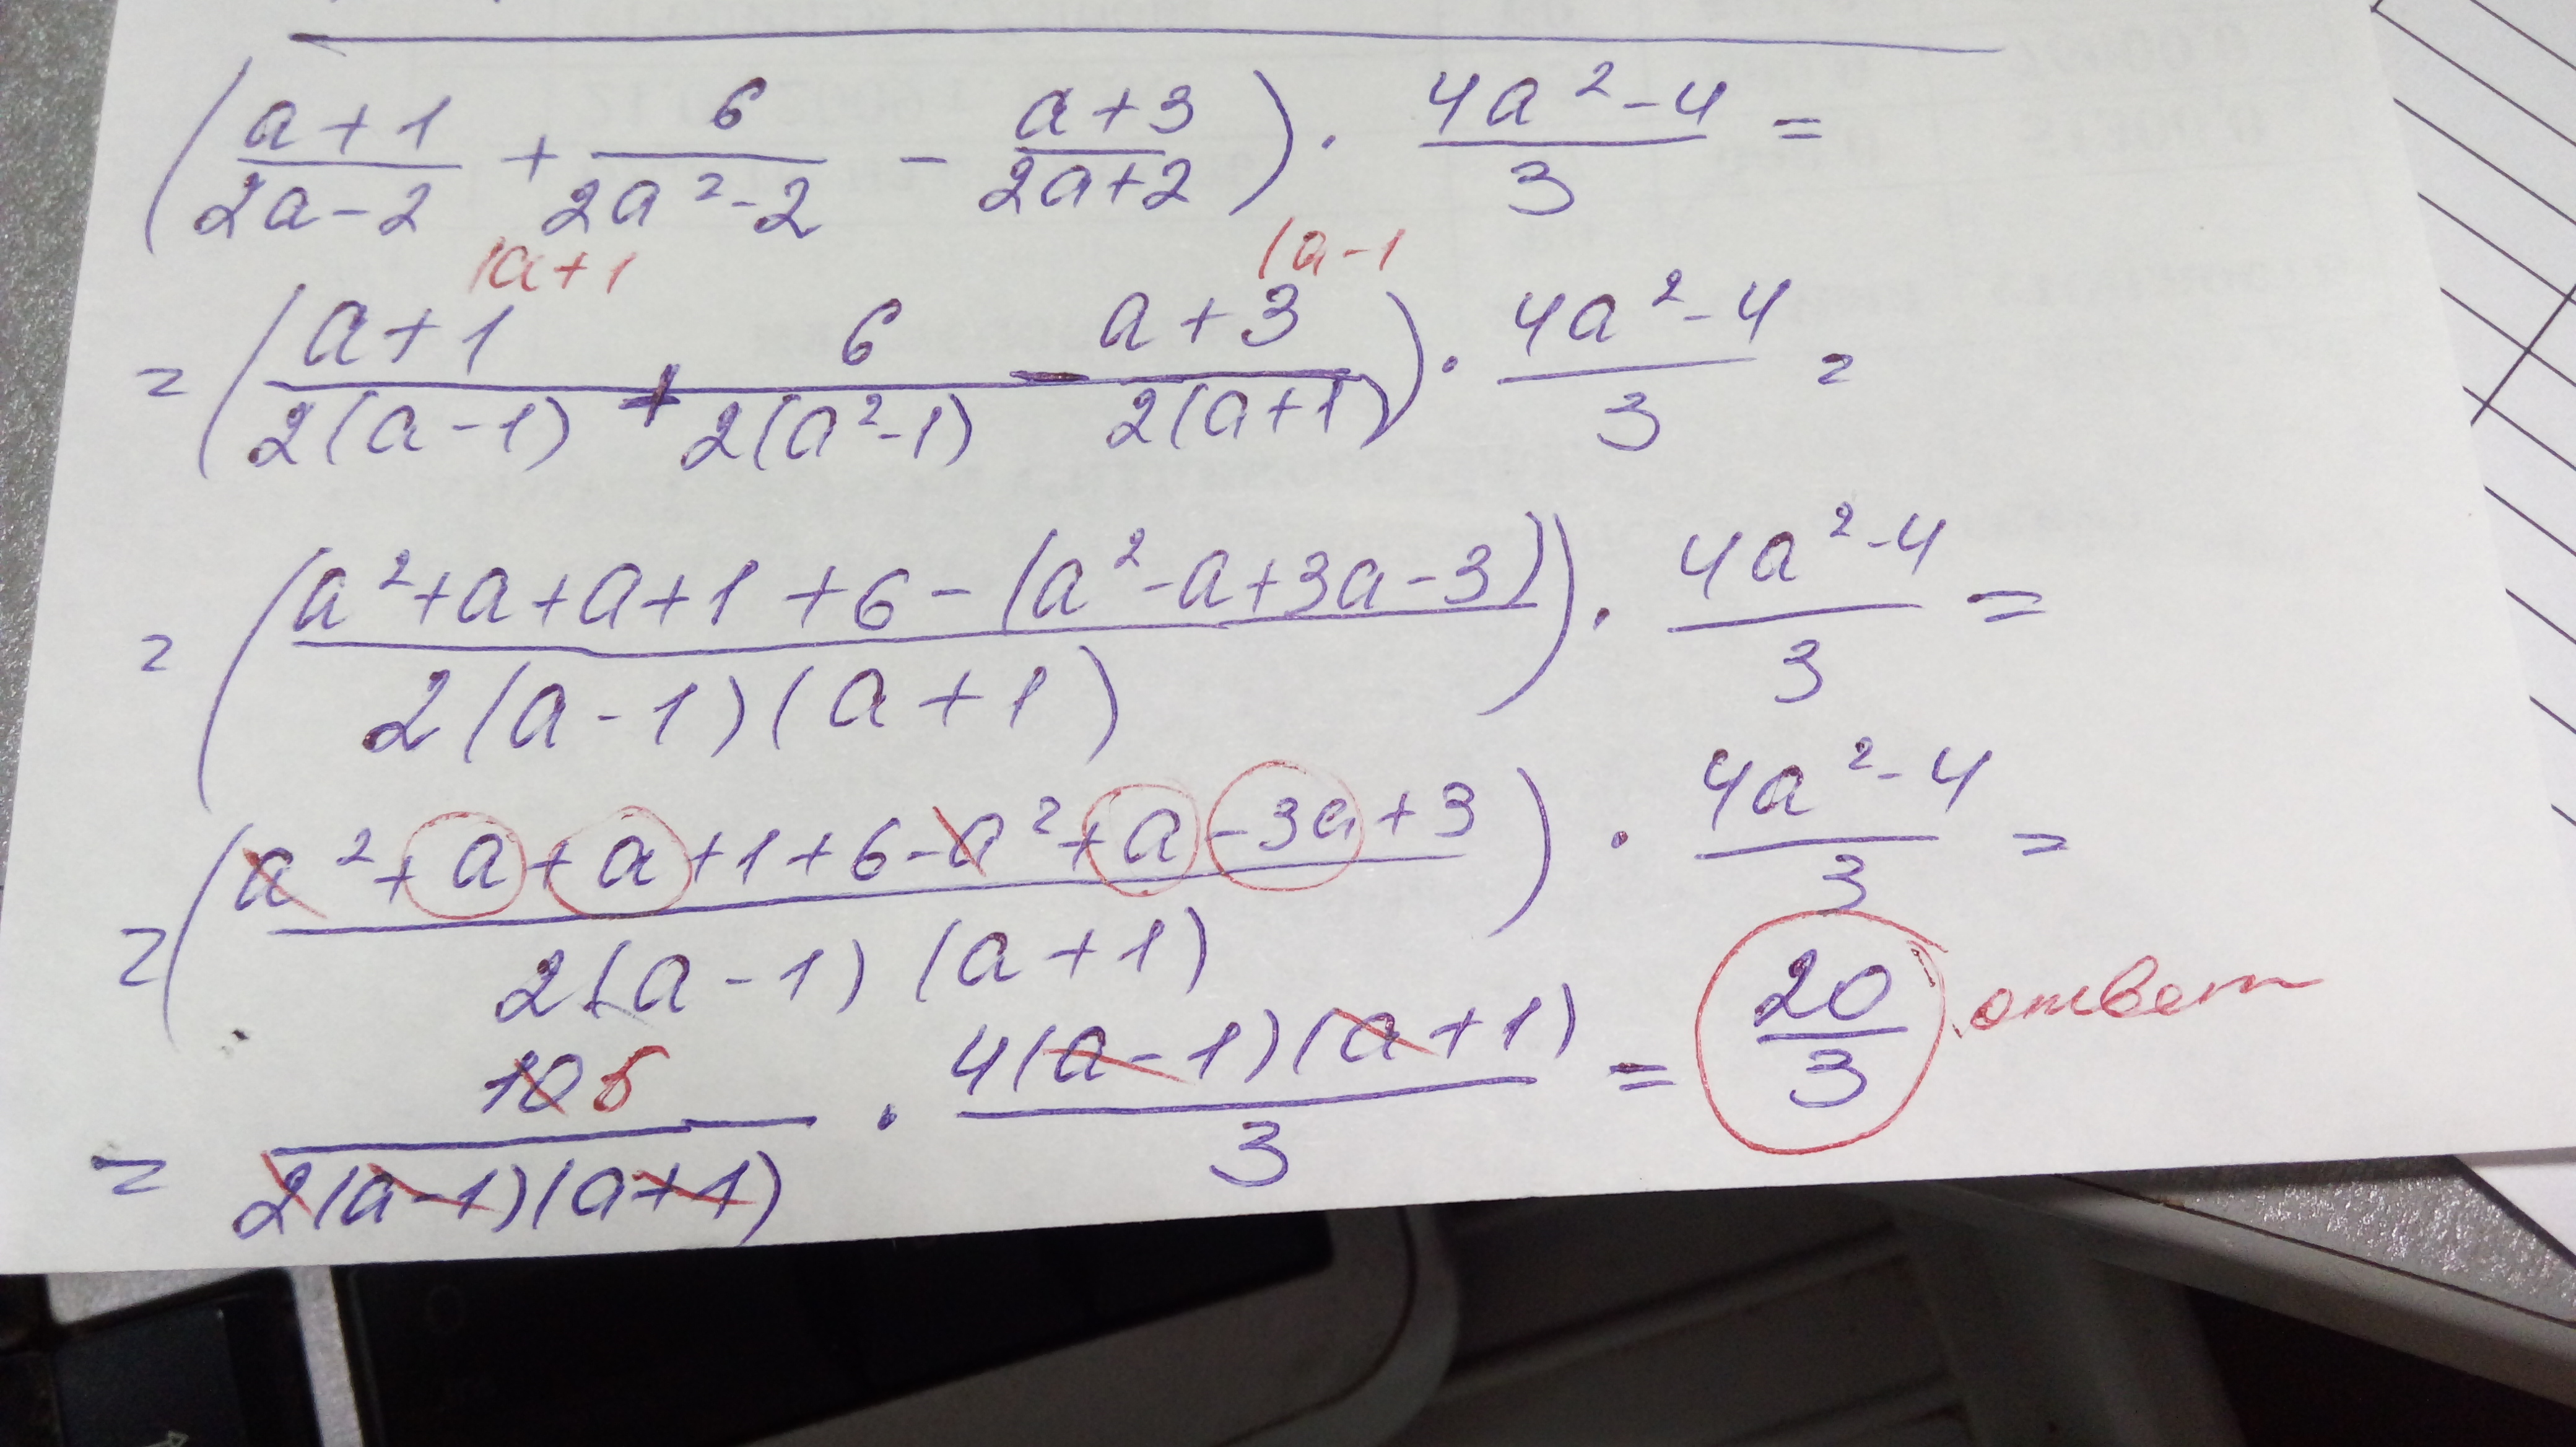 (a+1/2a-2 + 6/2a²-2 - a+3/2a+2) · 4a²-4/3 =
/a+1 /a-1
= (a+1/2(a-1) + 6/2(a²-1) - a+3/2(a+1)) · 4a²-4/3 =
= (a²+a+a+1+6-(a²-a+3a-3)/2(a-1)(a+1)) · 4a²-4/3 =
= (a²+a+a+1+6-a²+a-3a+3/2(a-1)(a+1)) · 4a²-4/3 =
= 10 5/2(a-1)(a+1) · 4(a-1)(a+1)/3 = 20/3 ответ